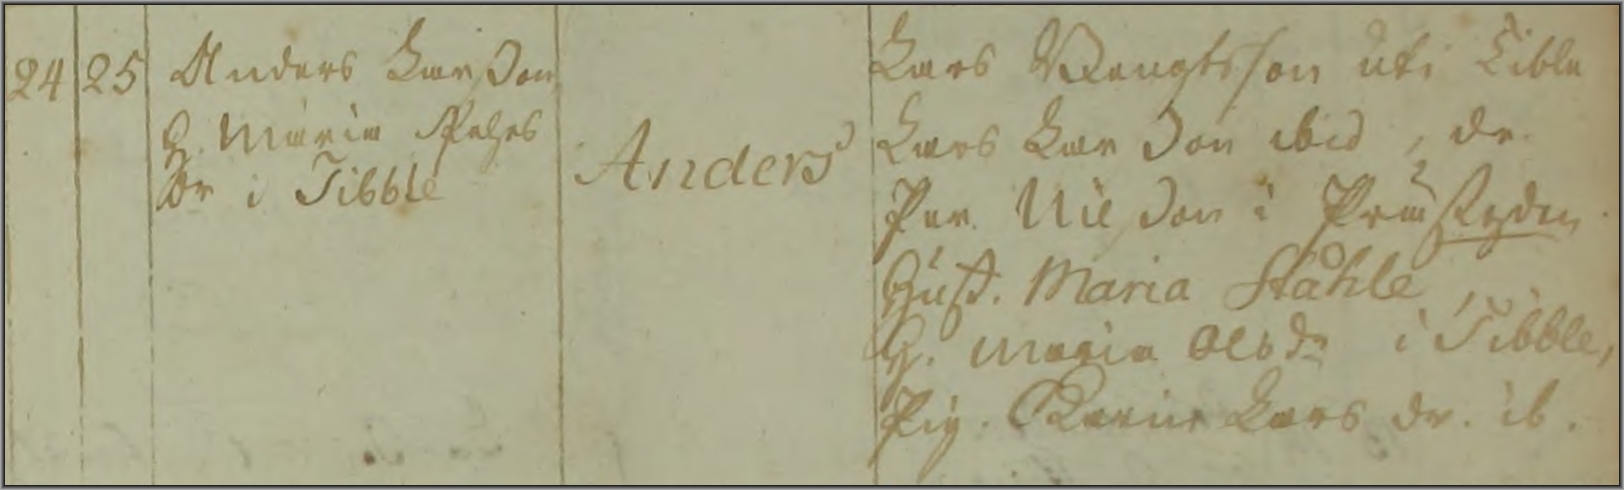 24 25 Anders Larsson
H. Maria Pehrs
dr i Tibble
Anders
Lars Bengtsson uti Tible
Lars Larsson ibid, dr.
Per Nilsson i Prästgården
Hust. Maria Ståhle
H. Maria Olsdr i Tibble,
Pig. Karin Lars dr. ib.